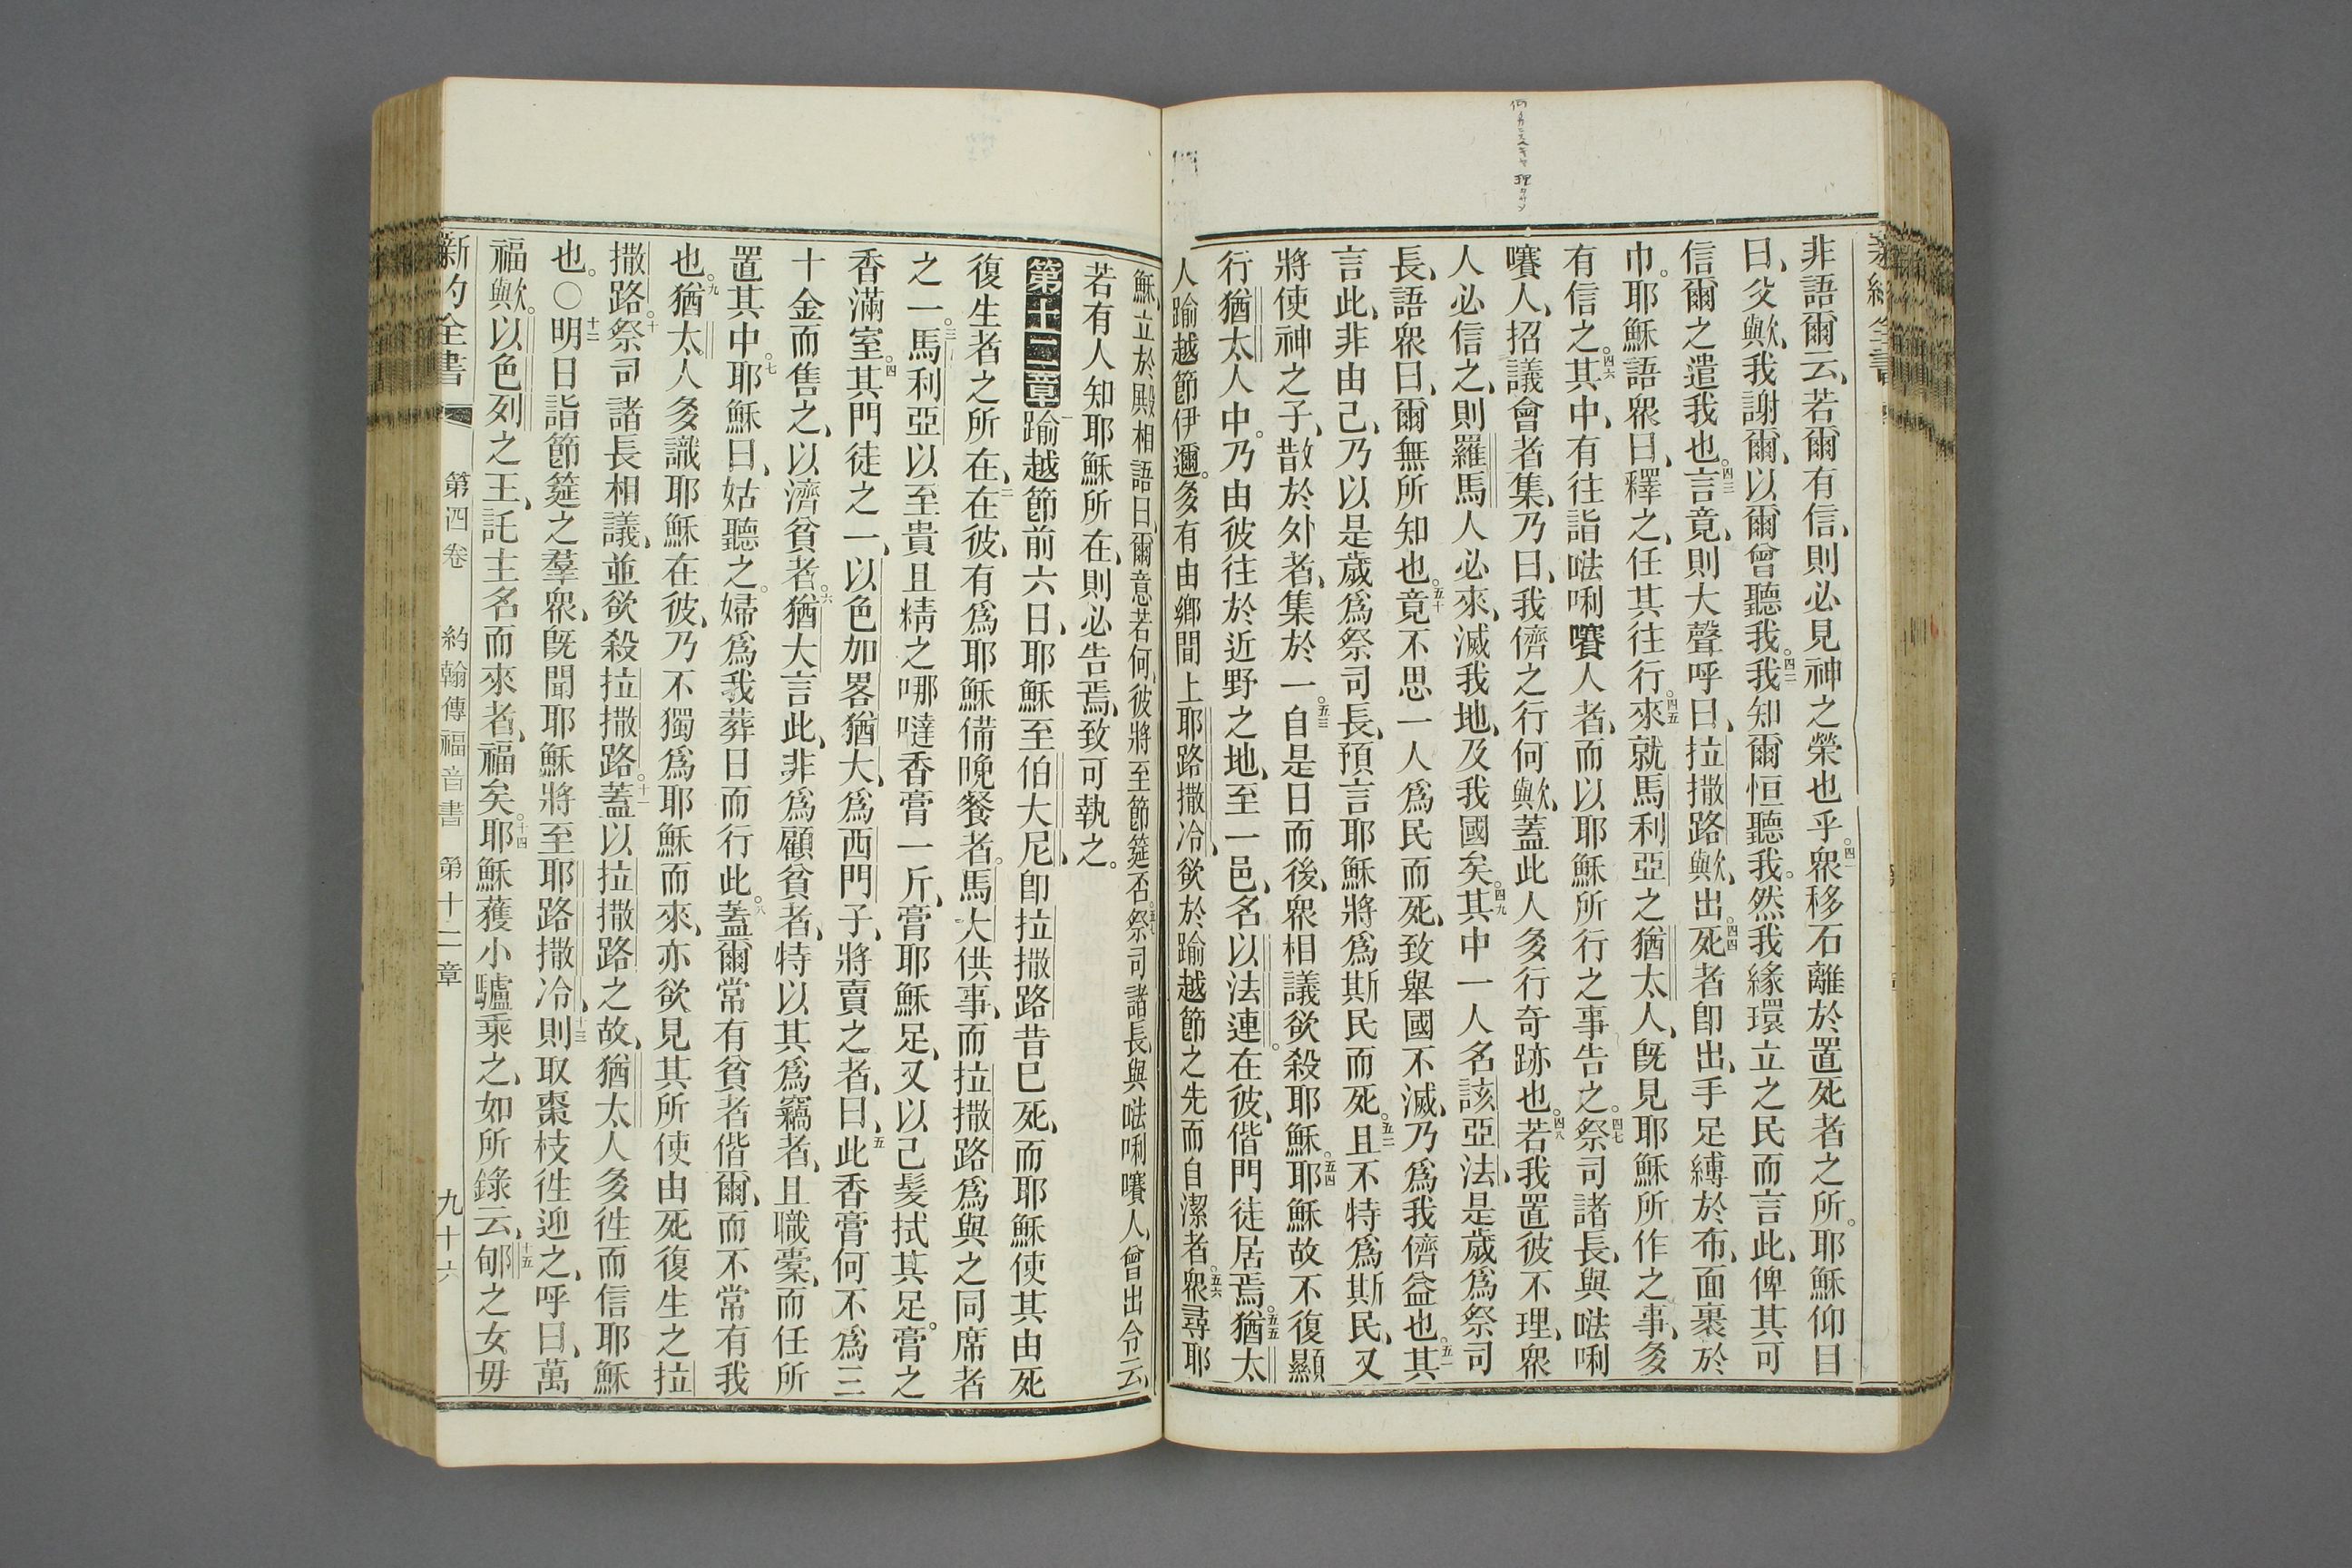 非語爾云、若爾有信、則必見神之榮也乎。四一衆移石離於置死者之所。耶穌仰目
曰、父歟、我謝爾、以爾曾聽我。四二我知爾恒聽我。然我緣環立之民而言此、俾其可
信爾之遣我也。四三言竟、則大聲呼曰、拉撒路歟、出。四四死者卽出、手足縛於布、面裹於
巾。耶穌語衆曰、釋之、任其往行。四五來就馬利亞之猶太人、旣見耶穌所作之事、多
有信之。四六其中、有往詣𠵽唎嚽人者、而以耶穌所行之事告之。四七祭司諸長、與𠵽唎
嚽人、招議會者集、乃曰、我儕之行何歟、蓋此人多行奇跡也。四八若我置彼不理、衆
人必信之、則羅馬人必來、滅我地、及我國矣。四九其中一人名該亞法、是歲爲祭司
長、語衆曰、爾無所知也。五十竟不思一人爲民而死、致舉國不滅、乃爲我儕益也。五一其
言此、非由己、乃以是歲爲祭司長、預言耶穌將爲斯民而死。五二且不特爲斯民、又
將使神之子、散於外者、集於一。五三自是日而後、衆相議欲殺耶穌。五四耶穌故不復顯
行猶太人中。乃由彼往於近野之地、至一邑、名以法連。在彼、偕門徒居焉。五五猶太
人踰越節伊邇。多有由鄉間上耶路撒冷、欲於踰越節之先而自潔者。五六衆尋耶
穌、立於殿相語曰、爾意若何、彼將至節筵否。五七祭司諸長與𠵽唎嚽人、曾出令云、
若有人知耶穌所在、則必告焉、致可執之。
第十二章一踰越節前六日、耶穌至伯大尼、卽拉撒路昔已死、而耶穌使其由死
復生者之所在、二在彼、有爲耶穌備晚餐者。馬大供事、而拉撒路爲與之同席者
之一。三馬利亞以至貴且精之哪噠香膏一斤、膏耶穌足、又以己髮拭其足。膏之
香滿室。四其門徒之一、以色加畧猶大、爲西門子、將賣之者、曰、五此香膏何不爲三
十金而售之、以濟貧者。六猶大言此、非爲顧貧者、特以其爲竊者、且職橐、而任所
置其中。七耶穌曰、姑聽之。婦爲我葬日而行此。八蓋爾常有貧者偕爾、而不常有我
也。九猶太人多識耶穌在彼、乃不獨爲耶穌而來、亦欲見其所使由死復生之拉
撒路。十祭司諸長相議、並欲殺拉撒路。十一蓋以拉撒路之故、猶太人多往而信耶穌
也。〇十二明日詣節筵之羣衆、旣聞耶穌將至耶路撒冷、十三則取棗枝往迎之、呼曰、萬
福歟。以色列之王、託主名而來者、福矣。十四耶穌獲小驢乘之、如所錄云、十五郇之女毋
新約全書 第四卷 約翰傳福音書 第十二章 九十六